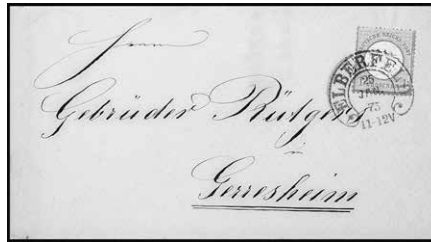 Herrn
Gebrüder Rütgers
in
Gerresheim
ELBERFELD
25
JAN.
73
11-12V